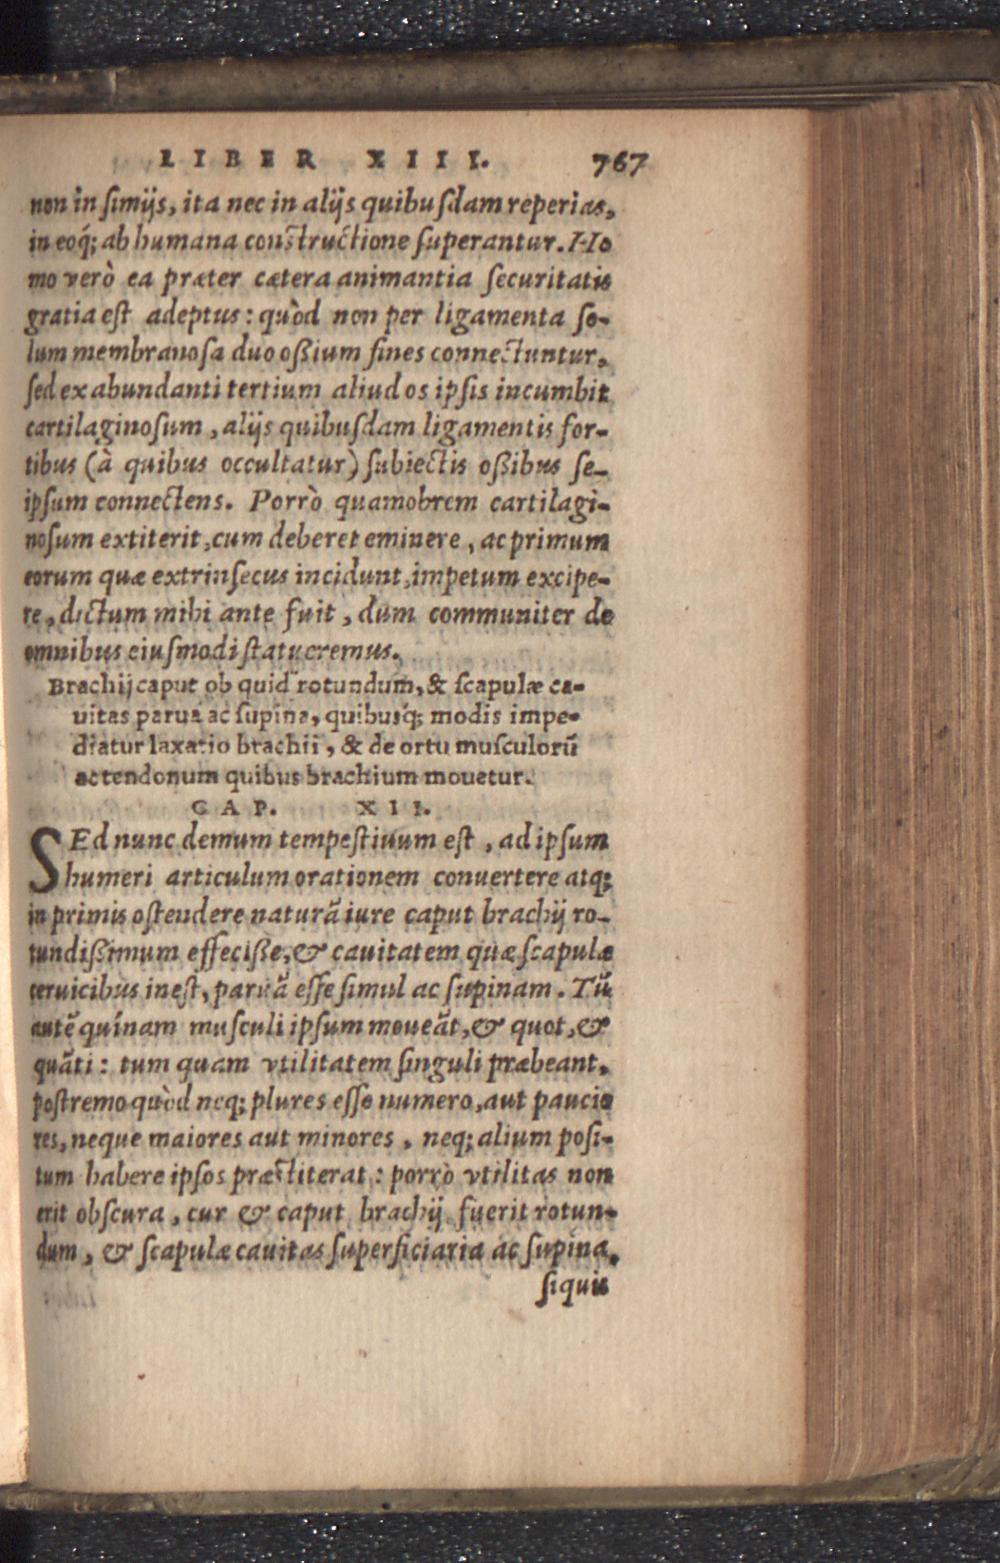 LIBER XIII. 767
non in simijs, ita nec in alijs quibusdam reperias,
in eoq́; ab humana constructione superantur. Ho
mo verò ea præter cætera animantia securitatis
gratia est adeptus: quòd non per ligamenta so-
lum membranosa duo oßium fines connectuntur,
sed ex abundanti tertium aliud os ipsis incumbit
cartilaginosum, alijs quibusdam ligamentis for-
tibus (à quibus occultatur) subiectis oßibus se-
ipsum connectens. Porrò quamobrem cartilagi-
nosum extiterit, cum deberet eminere, ac primum
eorum quæ extrinsecus incidunt, impetum excipe-
re, dictum mihi ante fuit, dum communiter de
omnibus eiusmodi statueremus.
Brachij caput ob quid rotundum, & scapulæ ca-
uitas parua ac supina, quibusq́; modis impe-
diatur laxatio brachii, & de ortu musculorũ
ac tendonum quibus brachium mouetur.
CAP. XII.
SEd nunc demum tempestiuum est, ad ipsum
humeri articulum orationem conuertere atq;
in primis ostendere naturã iure caput brachij ro-
tundißimum effeciße, & cauitatem quæ scapulæ
ceruicibus inest, paruã esse simul ac supinam. Tũ
autẽ quínam musculi ipsum moueãt, & quot, &
quãti: tum quam vtilitatem singuli præbeant,
postremo quòd neq; plures esse numero, aut paucio
res, neque maiores aut minores, neq; alium posi-
tum habere ipsos præstiterat: porrò vtilitas non
erit obscura, cur & caput brachij fuerit rotun-
dum, & scapulæ cauitas superficiaria ac supina.
siquis